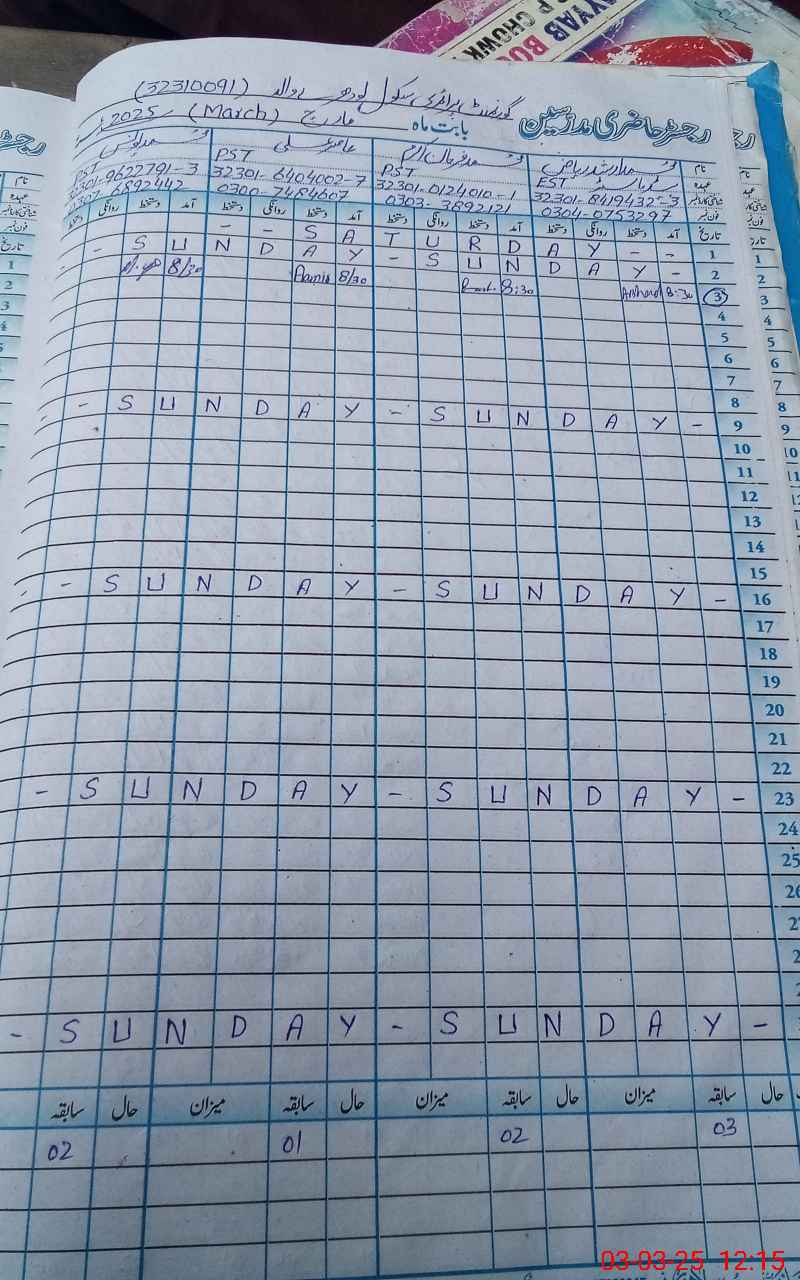 AYYAB BOO
P CHOWK
گورنمنٹ پرائمری سکول (32310091)
رجسٹر حاضری مدرسین بابت ماہ مارچ (March) 2025
نام محمد ارشد ریاض محمد اکرم عامر علی محمد یونس
عہدہ EST PST PST PST
32301-8419432-3 32301-0124010-1 32301-6404002-7 32301-9622791-3
فون نمبر 0304-0753297 0303-3892121 0300-7484607 6892442
تاریخ آمد دستخط روانگی دستخط آمد دستخط روانگی دستخط آمد دستخط روانگی دستخط آمد دستخط روانگی دستخط
1 - - S A T U R D A Y - -
2 - S U N D A Y - S U N D A Y -
3 8:30 Arshad 8:30 8/30 Aamir 8/30
4
5
6
7
8
9 - S U N D A Y - S U N D A Y -
10
11
12
13
14
15
16 - S U N D A Y - S U N D A Y -
17
18
19
20
21
22
23 - S U N D A Y - S U N D A Y -
24
25
- S U N D A Y - S U N D A Y -
حال سابقہ میزان حال سابقہ میزان حال سابقہ میزان حال سابقہ
03 02 01 02
03-03-25 12:15